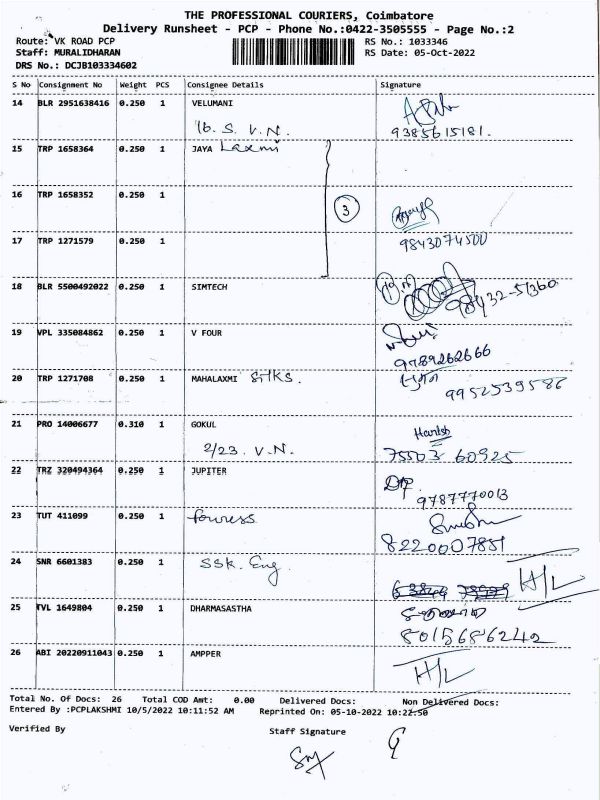 THE PROFESSIONAL COURIERS, Coimbatore
Delivery Runsheet - PCP - Phone No.:0422-3505555 - Page No.:2
Route: VK ROAD PCP RS No.: 1033346
Staff: MURALIDHARAN RS Date: 05-Oct-2022
DRS No.: DCJB103334602
S No Consignment No Weight PCS Consignee Details Signature
14 BLR 2951638416 0.250 1 VELUMANI
16. S. V. N. 9385615181.
15 TRP 1658364 0.250 1 JAYA Laxmi
16 TRP 1658352 0.250 1
3
17 TRP 1271579 0.250 1 9843074500
18 BLR 5500492022 0.250 1 SIMTECH
98432-51360
19 VPL 335084862 0.250 1 V FOUR
9789262666
20 TRP 1271708 0.250 1 MAHALAXMI Silks.
9952539586
21 PRO 14006677 0.310 1 GOKUL Harish
2/23. V. N. 75503 60925
22 TRZ 320494364 0.250 1 JUPITER
9787770013
23 TUT 411099 0.250 1
8220007851
24 SNR 6601383 0.250 1 SSK. Eng. H/L
25 TVL 1649804 0.250 1 DHARMASASTHA
8015686242
26 ABI 20220911043 0.250 1 AMPPER H/L
Total No. Of Docs: 26 Total COD Amt: 0.00 Delivered Docs: Non Delivered Docs:
Entered By :PCPLAKSHMI 10/5/2022 10:11:52 AM Reprinted On: 05-10-2022 10:22:50
Verified By Staff Signature